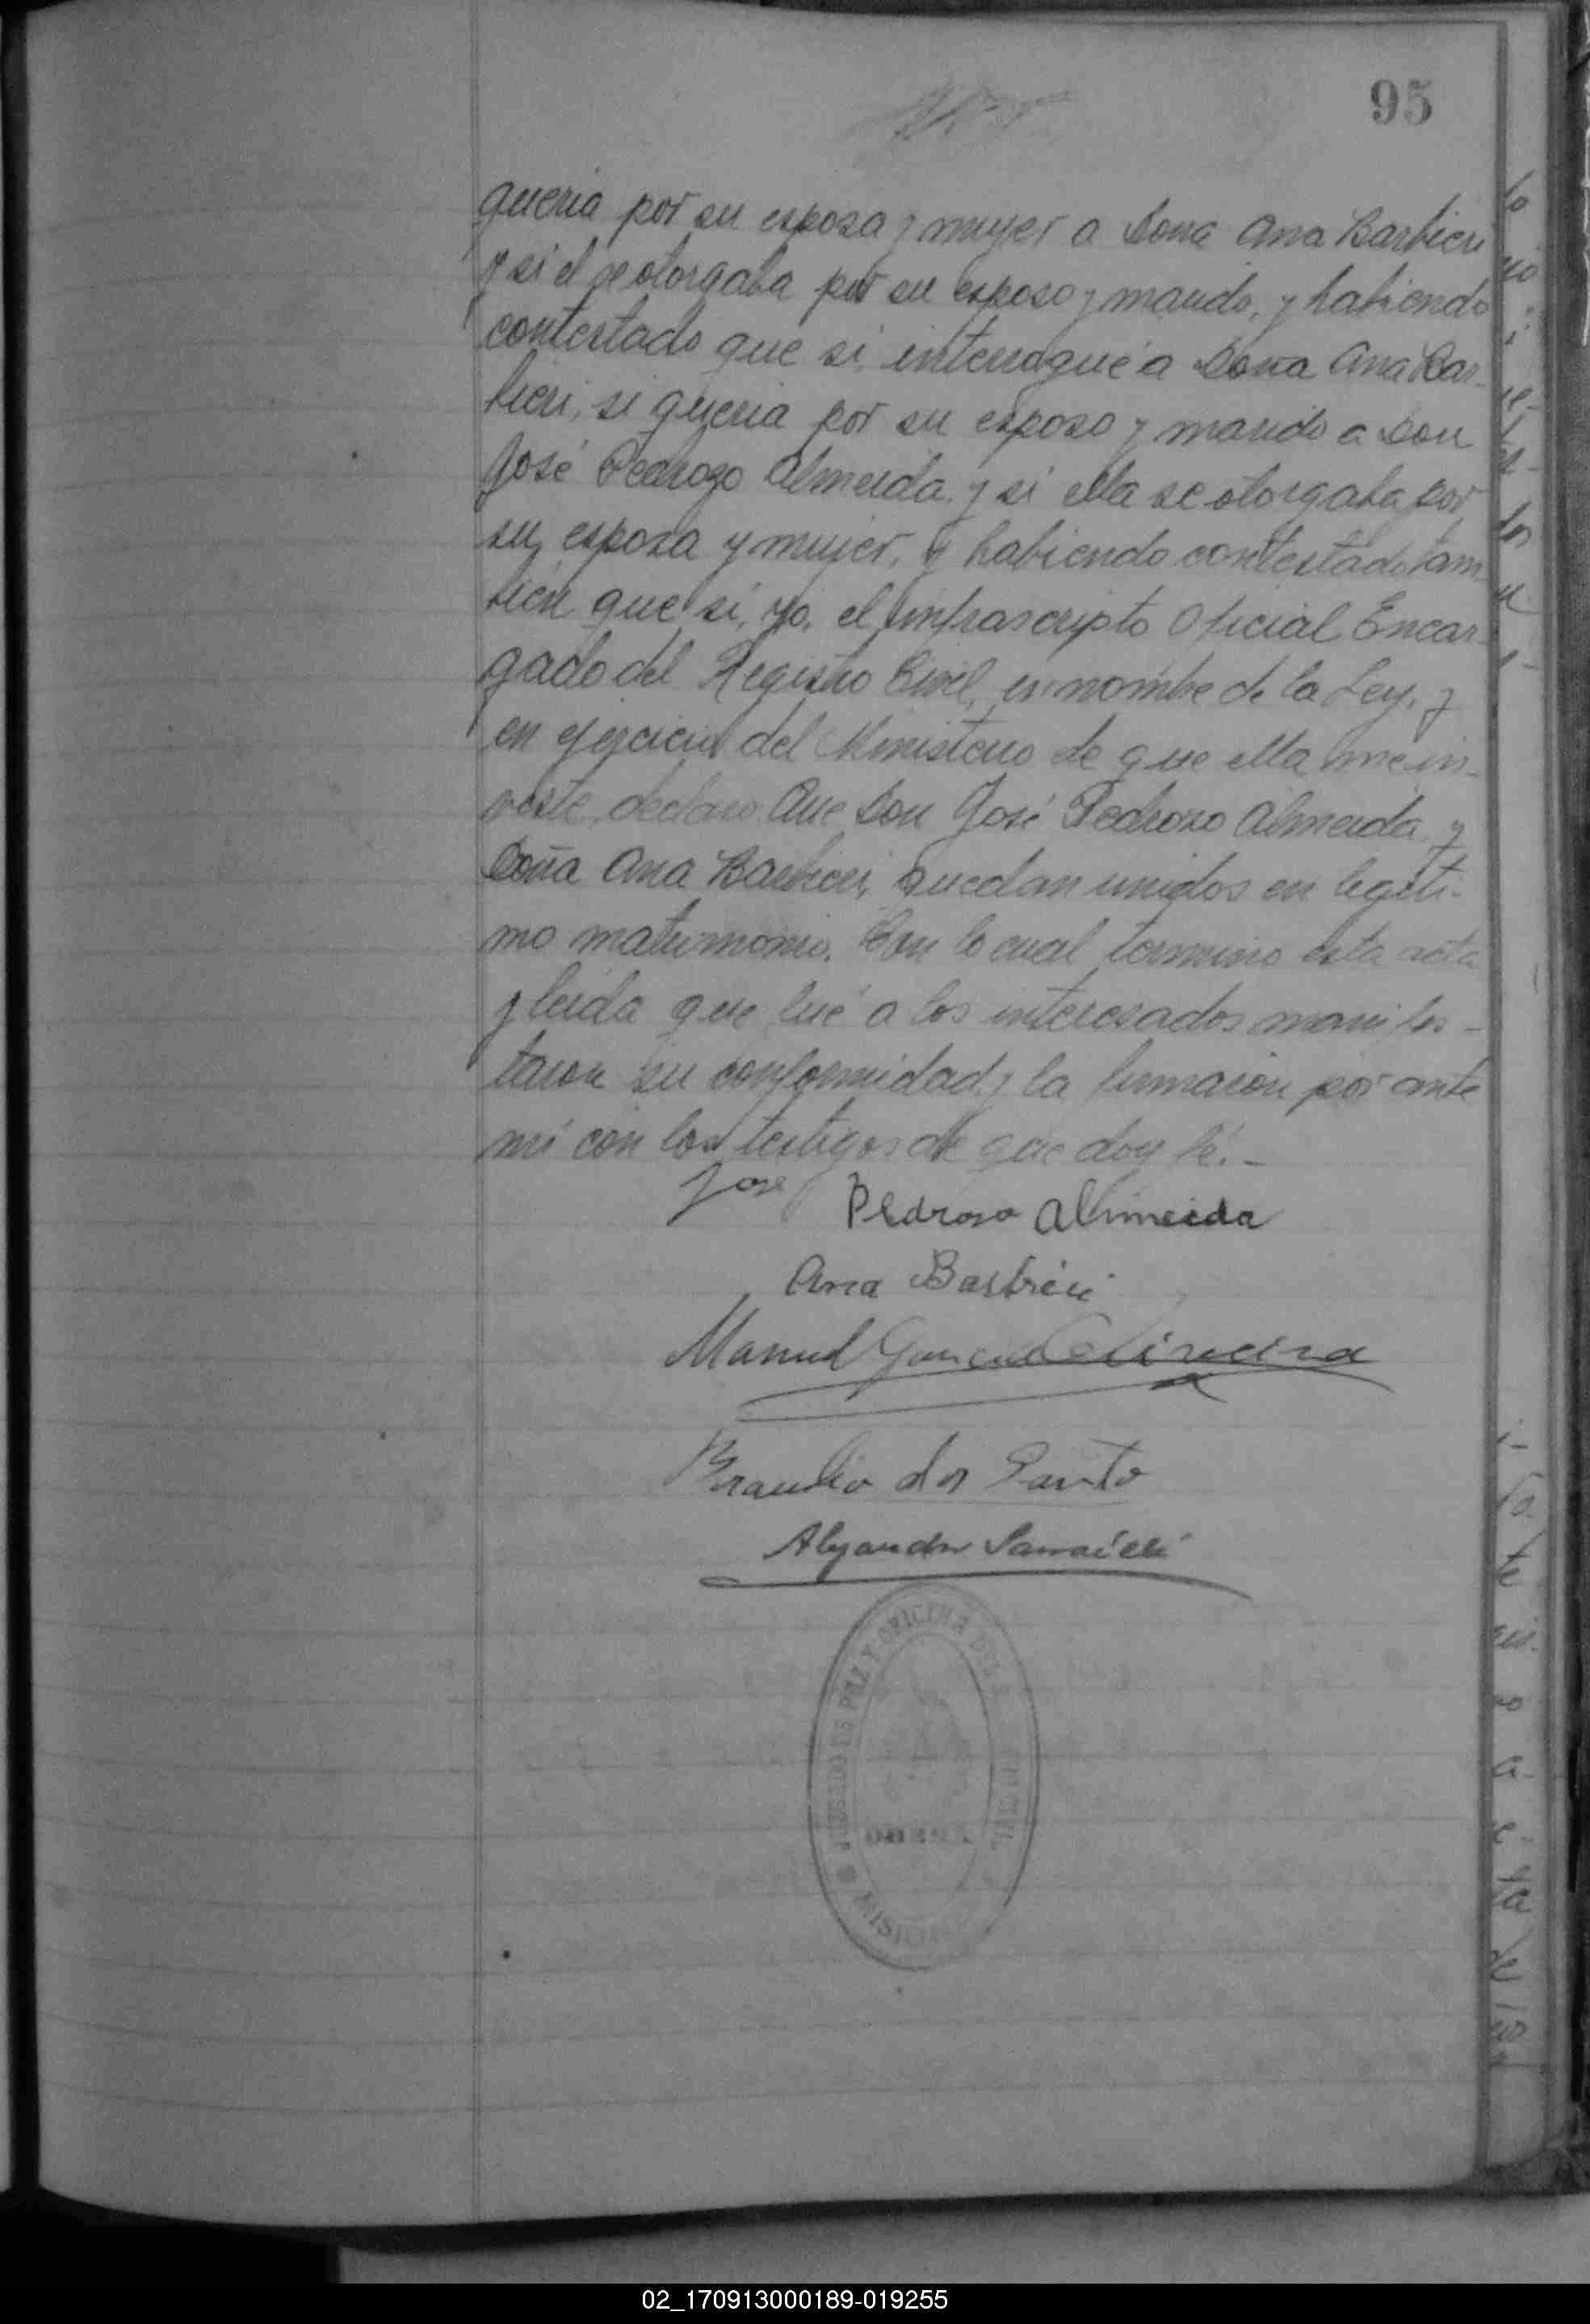 95
queria por su esposa y mujer a Doña Ana Barbieri
y si el se otorgaba por su esposo y marido, y habiendo
contestado que si, interrogué a Doña Ana Bar-
bieri, si queria por su esposo y marido a Don
José Pedrozo Almeida, y si ella se otorgaba por
su esposa y mujer, y habiendo contestado tam-
bien que sí, yo, el infrascripto Oficial Encar-
gado del Registro Civil, en nombre de la Ley, y
en ejercicio del Ministerio de que ella me in-
viste, declaro Que Don José Pedrozo Almeida y
Doña Ana Barbieri, quedan unidos en legiti-
mo matrimonio. Con lo cual termino esta acta
y leida que fué a los interesados manifes-
taron su conformidad y la firmaron por ante
mi con los testigos de que doy fé.-
Jose Pedroso Almeida
Ana Barbieri
Manuel Oliveira
Braulio dos Santo
Alejandro
JUZGADO DE PAZ Y OFICINA DEL CIVIL
MISIONES
02_170913000189-019255